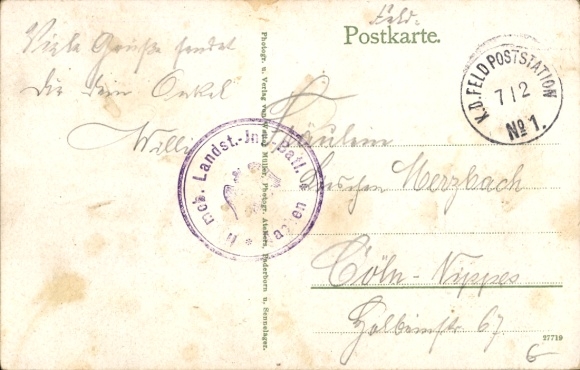 Feld-
Postkarte.
Viele Grüße sendet
Dir dein Onkel
Willi
K.D. FELDPOSTSTATION
7 12
No 1.
Landst.-Inf.-Batl.
II
Fräulein
Merzbach
Cöln-Nippes
Holbeinstr 67
Photogr. u. Verlag van Müller, Photogr. Ateliers, Paderborn u. Sennelager.
27719
6